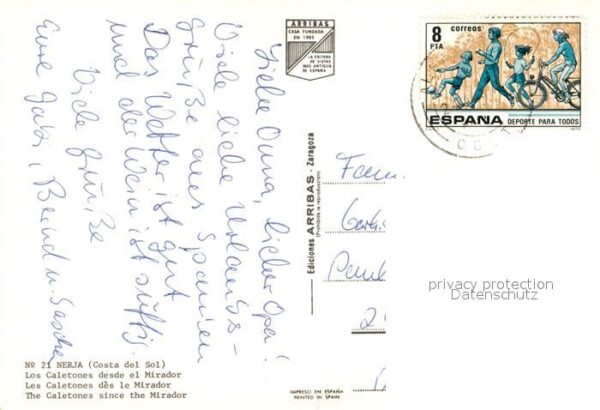 Liebe Oma, lieber Opa!
Viele liebe Urlaubs-
Grüße aus Spanien
Das Wetter ist gut
und der Wein ist süffig.
Viele Grüße
Eure Gabi, Bernd u. Sascha
Nº 21 NERJA (Costa del Sol)
Los Caletones desde el Mirador
Les Caletones dès le Mirador
The Caletones since the Mirador
ARRIBAS
CASA FUNDADA
EN 1905
LA EDITORA
DE VISTAS
MAS ANTIGUA
DE ESPAÑA
Ediciones ARRIBAS - Zaragoza
(Prohibida la reproducción)
IMPRESO EN ESPAÑA
PRINTED IN SPAIN
8
PTA
correos
ESPAÑA DEPORTE PARA TODOS
Fam.
privacy protection
Datenschutz